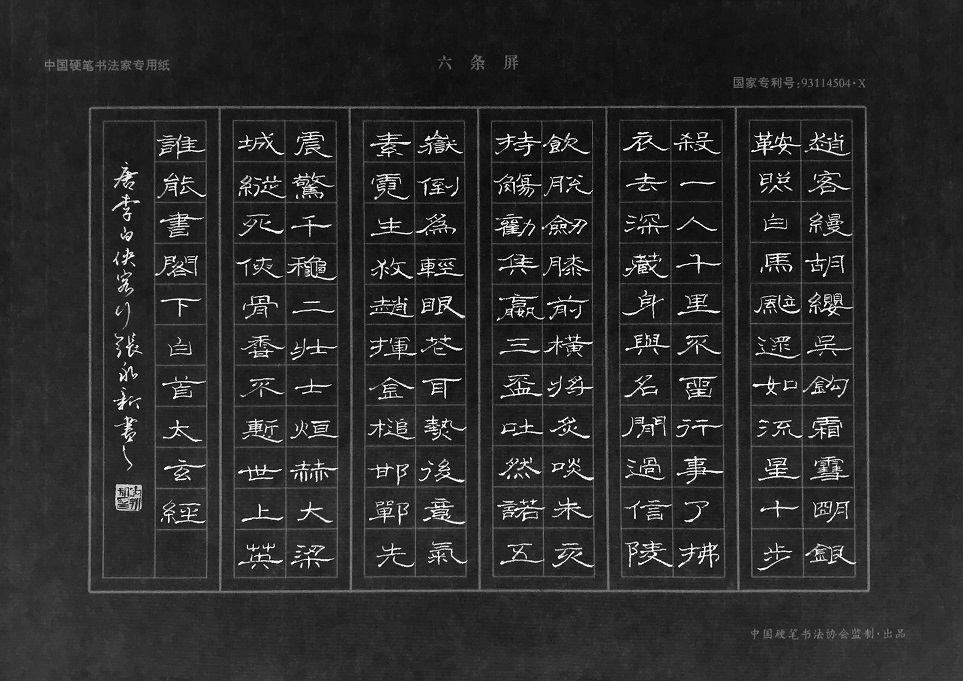 中国硬笔书法家专用纸
六条屏
国家专利号:93114504·X
趙客縵胡纓吳鈎霜雪明銀
鞍照白馬颯遝如流星十步
殺一人千里不留行事了拂
衣去深藏身與名閒過信陵
飲脫劒膝前橫將炙啖朱亥
持觴勸矦嬴三盃吐然諾五
嶽倒為輕眼花耳熱後意氣
素霓生救趙揮金槌邯鄲先
震驚千穐二壯士烜赫大梁
城縱死俠骨香不慙世上英
誰能書閣下白首太玄經
唐李白俠客行張永新書之
中国硬笔书法协会监制·出品